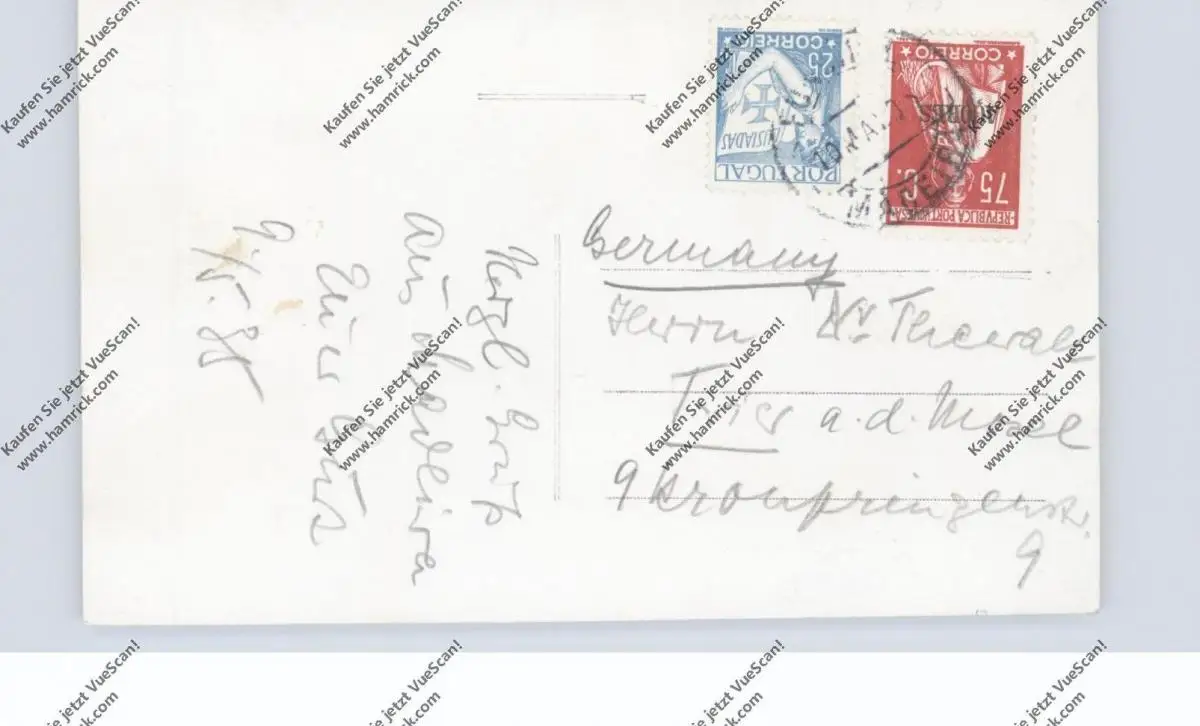 PORTUGAL
LUSIADAS
25
CORREIO
REPVBLICA PORTUGUESA
75 C.
AÇORES
CORREIO
MADEIRA
Germany
Herrn Dr Thewalt
Trier a. d. Mosel
9 Kronprinzenstr.
9
Herzl.
aus Madeira
9/5.
Kaufen Sie jetzt VueScan!
www.hamrick.com